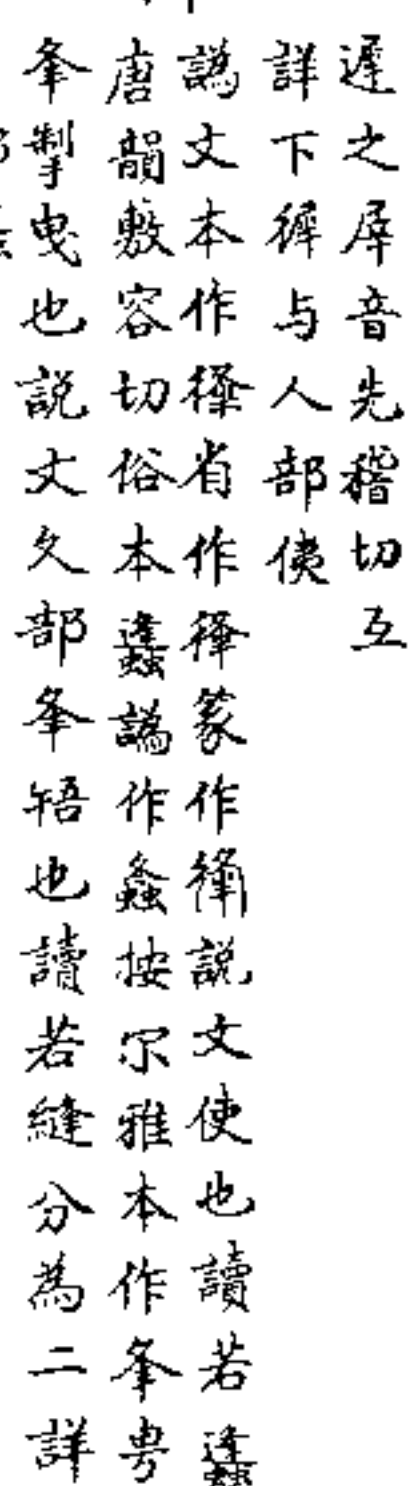 遲之屖音先稽切互
詳下徲与人部侇
譌文本作𢕬省作㣔篆作𢖊說文使也讀若𧒒
唐韻敷容切俗本蠭譌作螽按尔雅本作夆甹
夆掣曳也說文夂部夆啎也讀若縫分為二詳